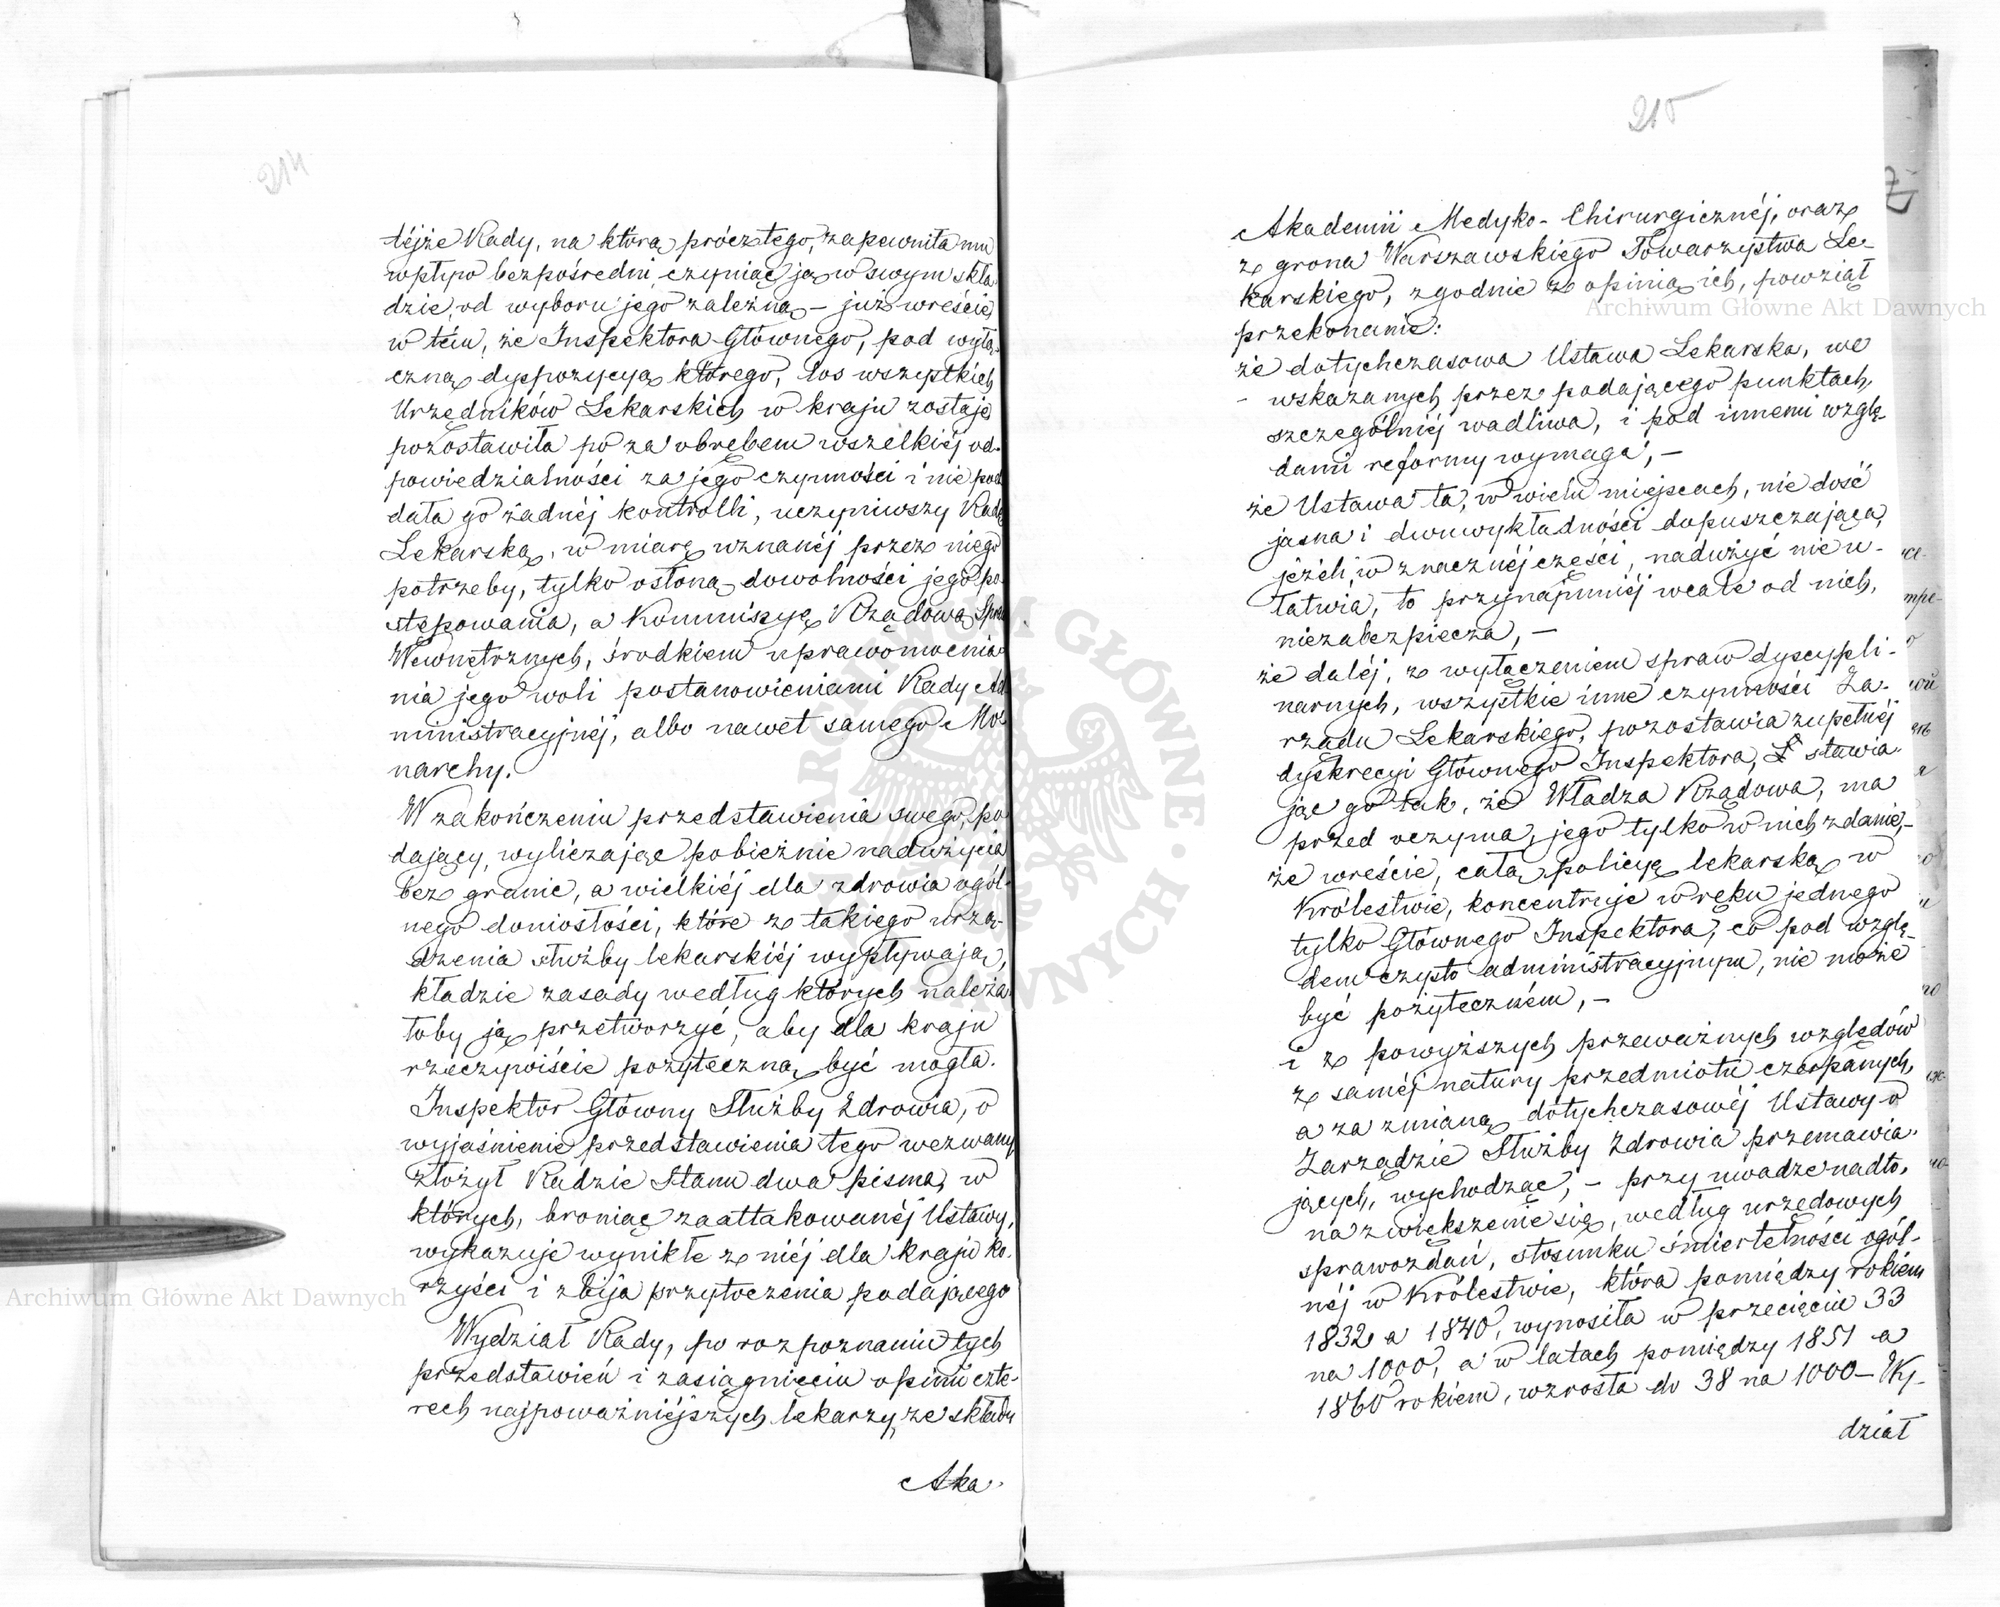 214
téjże Rady, na którą prócz tego, zapewniła mu
wpływ bezpośredni, czyniąc ją w swym skła-
dzie, od wyboru jego zależną – już wreście,
w tém, że Inspektora Głównego, pod wyłą-
czną dyspozycyą którego, los wszystkich
Urzędników Lekarskich w kraju zostaje
pozostawiła po za obrębem wszelkiéj od-
powiedzialności za jego czynności i nie pod
dała go żadnéj kontrolli, uczyniwszy Radę
Lekarską, w miarę uznanéj przez niego
potrzeby, tylko osłoną dowolności jego po-
stępowania, a Kommissyę Rządową Spraw
Wewnętrznych, środkiem uprawomocnia-
nia jego woli postanowieniami Rady Ad
ministracyjnéj, albo nawet samego Mo-
narchy.
W zakończeniu przedstawienia swego, po
dający, wyliczając pobieżnie nadużycia
bez granic, a wielkiéj dla zdrowia ogól-
nego doniosłości, które z takiego urzą-
dzenia służby lekarskiéj wypływają,
kładzie zasady według których należa-
łoby ją przetworzyć, aby dla kraju
rzeczywiście pożyteczną być mogła.
Inspektor Główny Służby Zdrowia, o
wyjaśnienie przedstawienia tego wezwany
złożył Radzie Stanu dwa pisma, w
których, broniąc zaattakowanéj Ustawy,
wykazuje wynikłe z niéj dla kraju ko-
rzyści i zbija przytoczenia podającego
Wydział Rady, po rozpoznaniu tych
przedstawień i zasiągnięciu opinii czte-
rech najpoważniéjszych lekarzy, ze składu
Aka-
215
Akademii Medyko-Chirurgicznéj, oraz
z grona Warszawskiego Towarzystwa Le-
karskiego, zgodnie z opinią ich, powziął
przekonanie:
że dotychczasowa Ustawa Lekarska, we
- wskazanych przez podającego punktach,
szczególniéj wadliwa, i pod innemi wzglę-
dami reformy wymaga, –
że Ustawa ta, w wielu miejscach, nie dość
jasna i dwuwykładności dopuszczająca,
jeżeli w znacznéj części, nadużyć nie u-
łatwia, to przynajmniéj wcale od nich,
niezabezpiecza, –
że daléj, z wyłączeniem spraw dyscypli-
narnych, wszystkie inne czynności Za-
rządu Lekarskiego, pozostawia zupełnéj
dyskrecyi Głównego Inspektora, stawia-
jąc go tak, że Władza Rządowa, ma
przed oczyma, jego tylko w nich zdanie, –
że wreście, całą policyę lekarską w
Królestwie, koncentruje w ręku jednego
tylko Głównego Inspektora, co pod wzglę-
dem czysto administracyjnym, nie może
być pożyteczném, –
i z powyższych przeważnych względów
z saméj natury przedmiotu czerpanych,
a za zmianą dotychczasowéj Ustawy o
Zarządzie Służby Zdrowia przemawia-
jących, wychodząc, – przy uwadze nadto,
na zwiększenie się, według urzędowych
sprawozdań, stosunku śmiertelności ogól-
néj w Królestwie, która pomiędzy rokiem
1832 a 1840, wynosiła w przecięciu 33
na 1000, a w latach pomiędzy 1851 a
1860 rokiem, wzrosła do 38 na 1000 – Wy-
dział
Archiwum Główne Akt Dawnych
Archiwum Główne Akt Dawnych